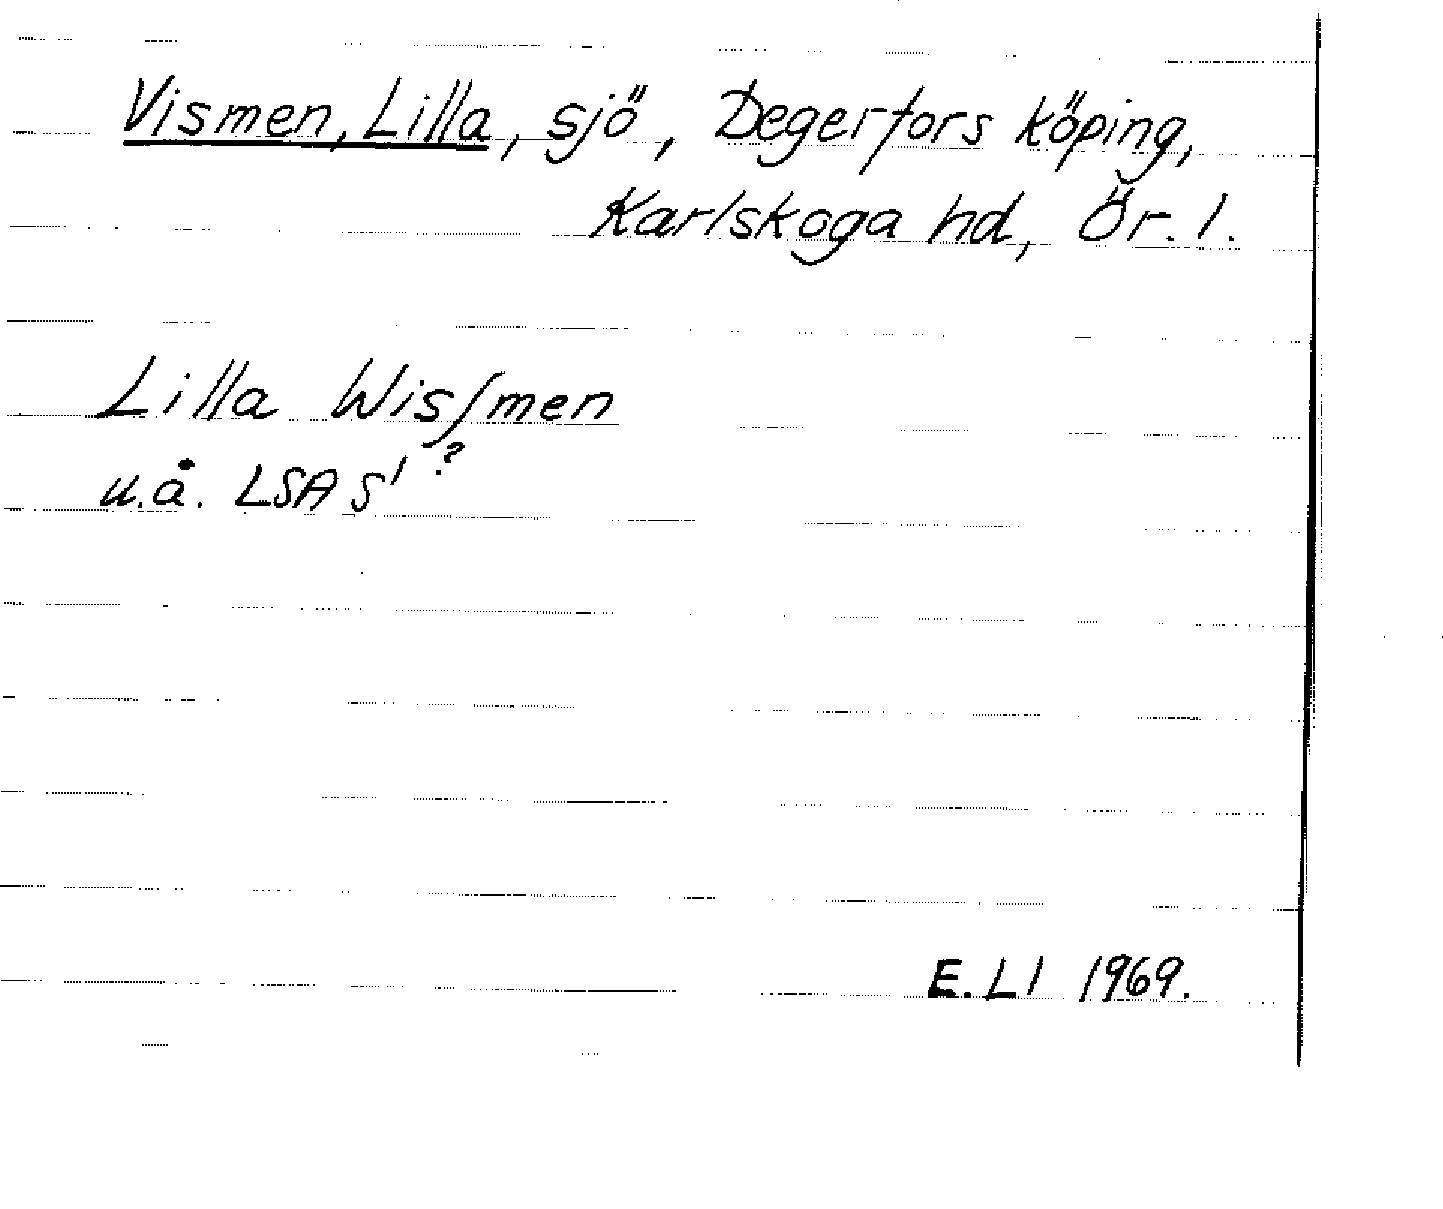 Vismen, Lilla, sjö, Degerfors köping,
Karlskoga hd, Ör. l.
Lilla Wisſmen
u.å. LSA S¹ ?
E. LI 1969.